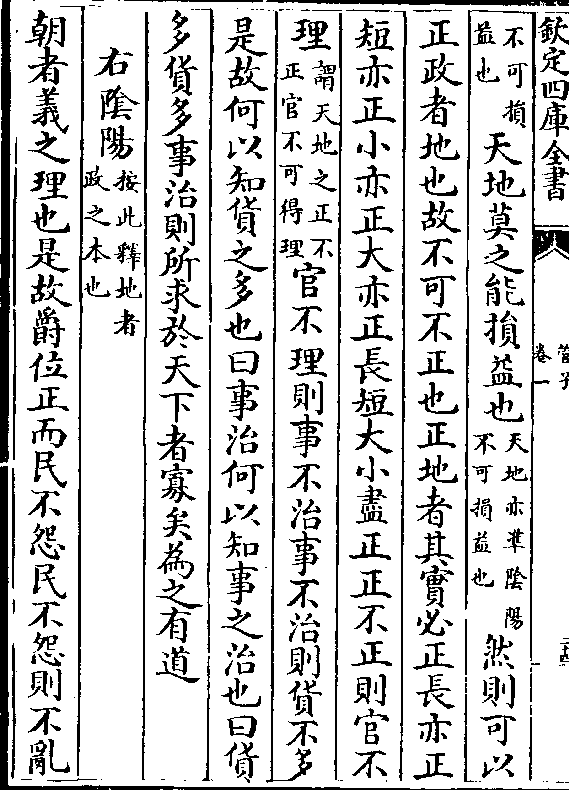 欽定四庫全書
管子
卷一
不可損益也天地莫之能損益也天地亦準隂陽不可損益也然則可以
正政者地也故不可不正也正地者其實必正長亦正
短亦正小亦正大亦正長短大小盡正正不正則官不
理謂天地之正不正官不可得理官不理則事不治事不治則貨不多
是故何以知貨之多也曰事治何以知事之治也曰貨
多貨多事治則所求於天下者寡矣為之有道
右隂陽按此釋地者政之本也
朝者義之理也是故爵位正而民不怨民不怨則不亂